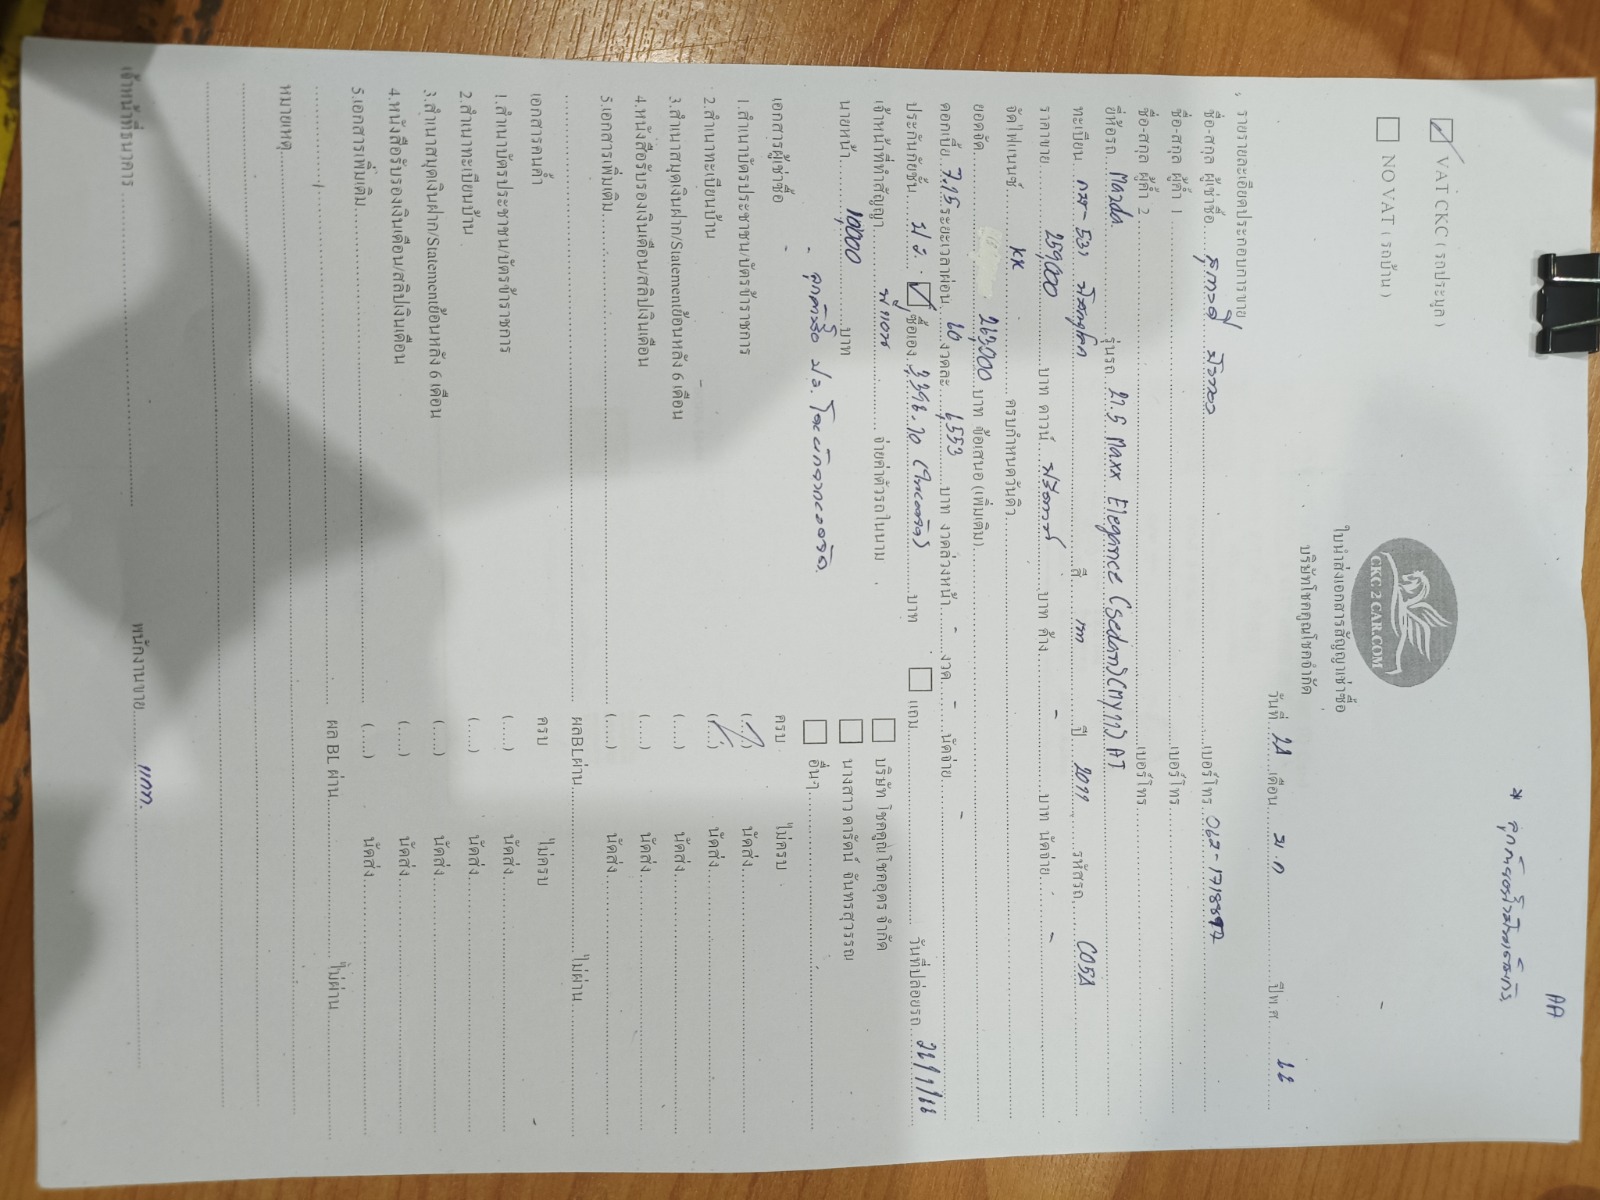 AA
* ลูกค้า
☑ VAT CKC ( รถประมูล )
☐ NO VAT ( รถบ้าน )
CKC 2 CAR.COM
ใบนำส่งเอกสารสัญญาเช่าซื้อ
บริษัทโชคคูณโชคจำกัด
วันที่ 21 เดือน ม.ค ปีพ.ศ. 66
รายรายละเอียดประกอบการขาย
ชื่อ-สกุล ผู้เช่าซื้อ เบอร์โทร
ชื่อ-สกุล ผู้ค้ำ 1 เบอร์โทร
ชื่อ-สกุล ผู้ค้ำ 2 เบอร์โทร
ยี่ห้อรถ Mazda รุ่นรถ 2 1.5 Maxx Elegance (sedan) (MY11) AT
ทะเบียน พิษณุโลก สี เทา ปี 2011 รหัสรถ
ราคาขาย 259,000 บาท ดาวน์ ฟรีดาวน์ บาท ค้าง - บาท นัดจ่าย -
จัดไฟแนนซ์ KK ครบกำหนดควันคิว
ยอดจัด 263,000 บาท ข้อเสนอ (เพิ่มเติม)
ดอกเบี้ย 7.15 ระยะเวลาผ่อน 60 งวดละ 6,553 บาท งวดล่วงหน้า - งวด - นัดจ่าย -
ประกันภัยชั้น ☑ ซื้อเอง บาท ☐ แถม วันที่ปล่อยรถ 26/1/66
เจ้าหน้าที่ที่ทำสัญญา จ่ายค่าตัวรถในนาม ☐ บริษัท โชคคูณโชคอุดร จำกัด
นายหน้า 10,000 บาท ☐ นางสาว ดารัตน์ จันทรสุวรรณ
☐ อื่นๆ
เอกสารผู้เช่าซื้อ ครบ ไม่ครบ
1.สำเนาบัตรประชาชน/บัตรข้าราชการ (/) นัดส่ง
2.สำเนาทะเบียนบ้าน (/) นัดส่ง
3.สำเนาสมุดเงินฝาก/Statementย้อนหลัง 6 เดือน (....) นัดส่ง
4.หนังสือรับรองเงินเดือน/สลิปเงินเดือน (....) นัดส่ง
5.เอกสารเพิ่มเติม (....) นัดส่ง
ผลBLผ่าน ไม่ผ่าน
เอกสารคนค้ำ ครบ ไม่ครบ
1.สำเนาบัตรประชาชน/บัตรข้าราชการ (....) นัดส่ง
2.สำเนาทะเบียนบ้าน (....) นัดส่ง
3.สำเนาสมุดเงินฝาก/Statementย้อนหลัง 6 เดือน (....) นัดส่ง
4.หนังสือรับรองเงินเดือน/สลิปเงินเดือน (....) นัดส่ง
5.เอกสารเพิ่มเติม (....) นัดส่ง
ผล BL ผ่าน ไม่ผ่าน
หมายเหตุ
เจ้าหน้าที่ธนาคาร พนักงานขาย